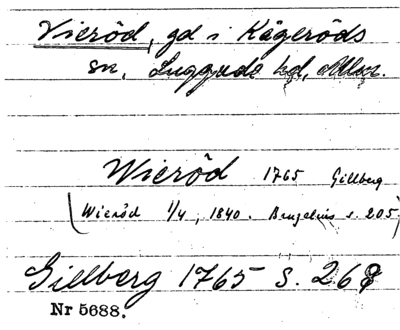 Vieröd, gd i Kågeröds
sn, Luggude hd, Mlm.
Wieröd 1765 Gillberg
(Wieröd 1/4, 1840. Bruzelius s. 205)
Gillberg 1765 S. 268
Nr 5688.